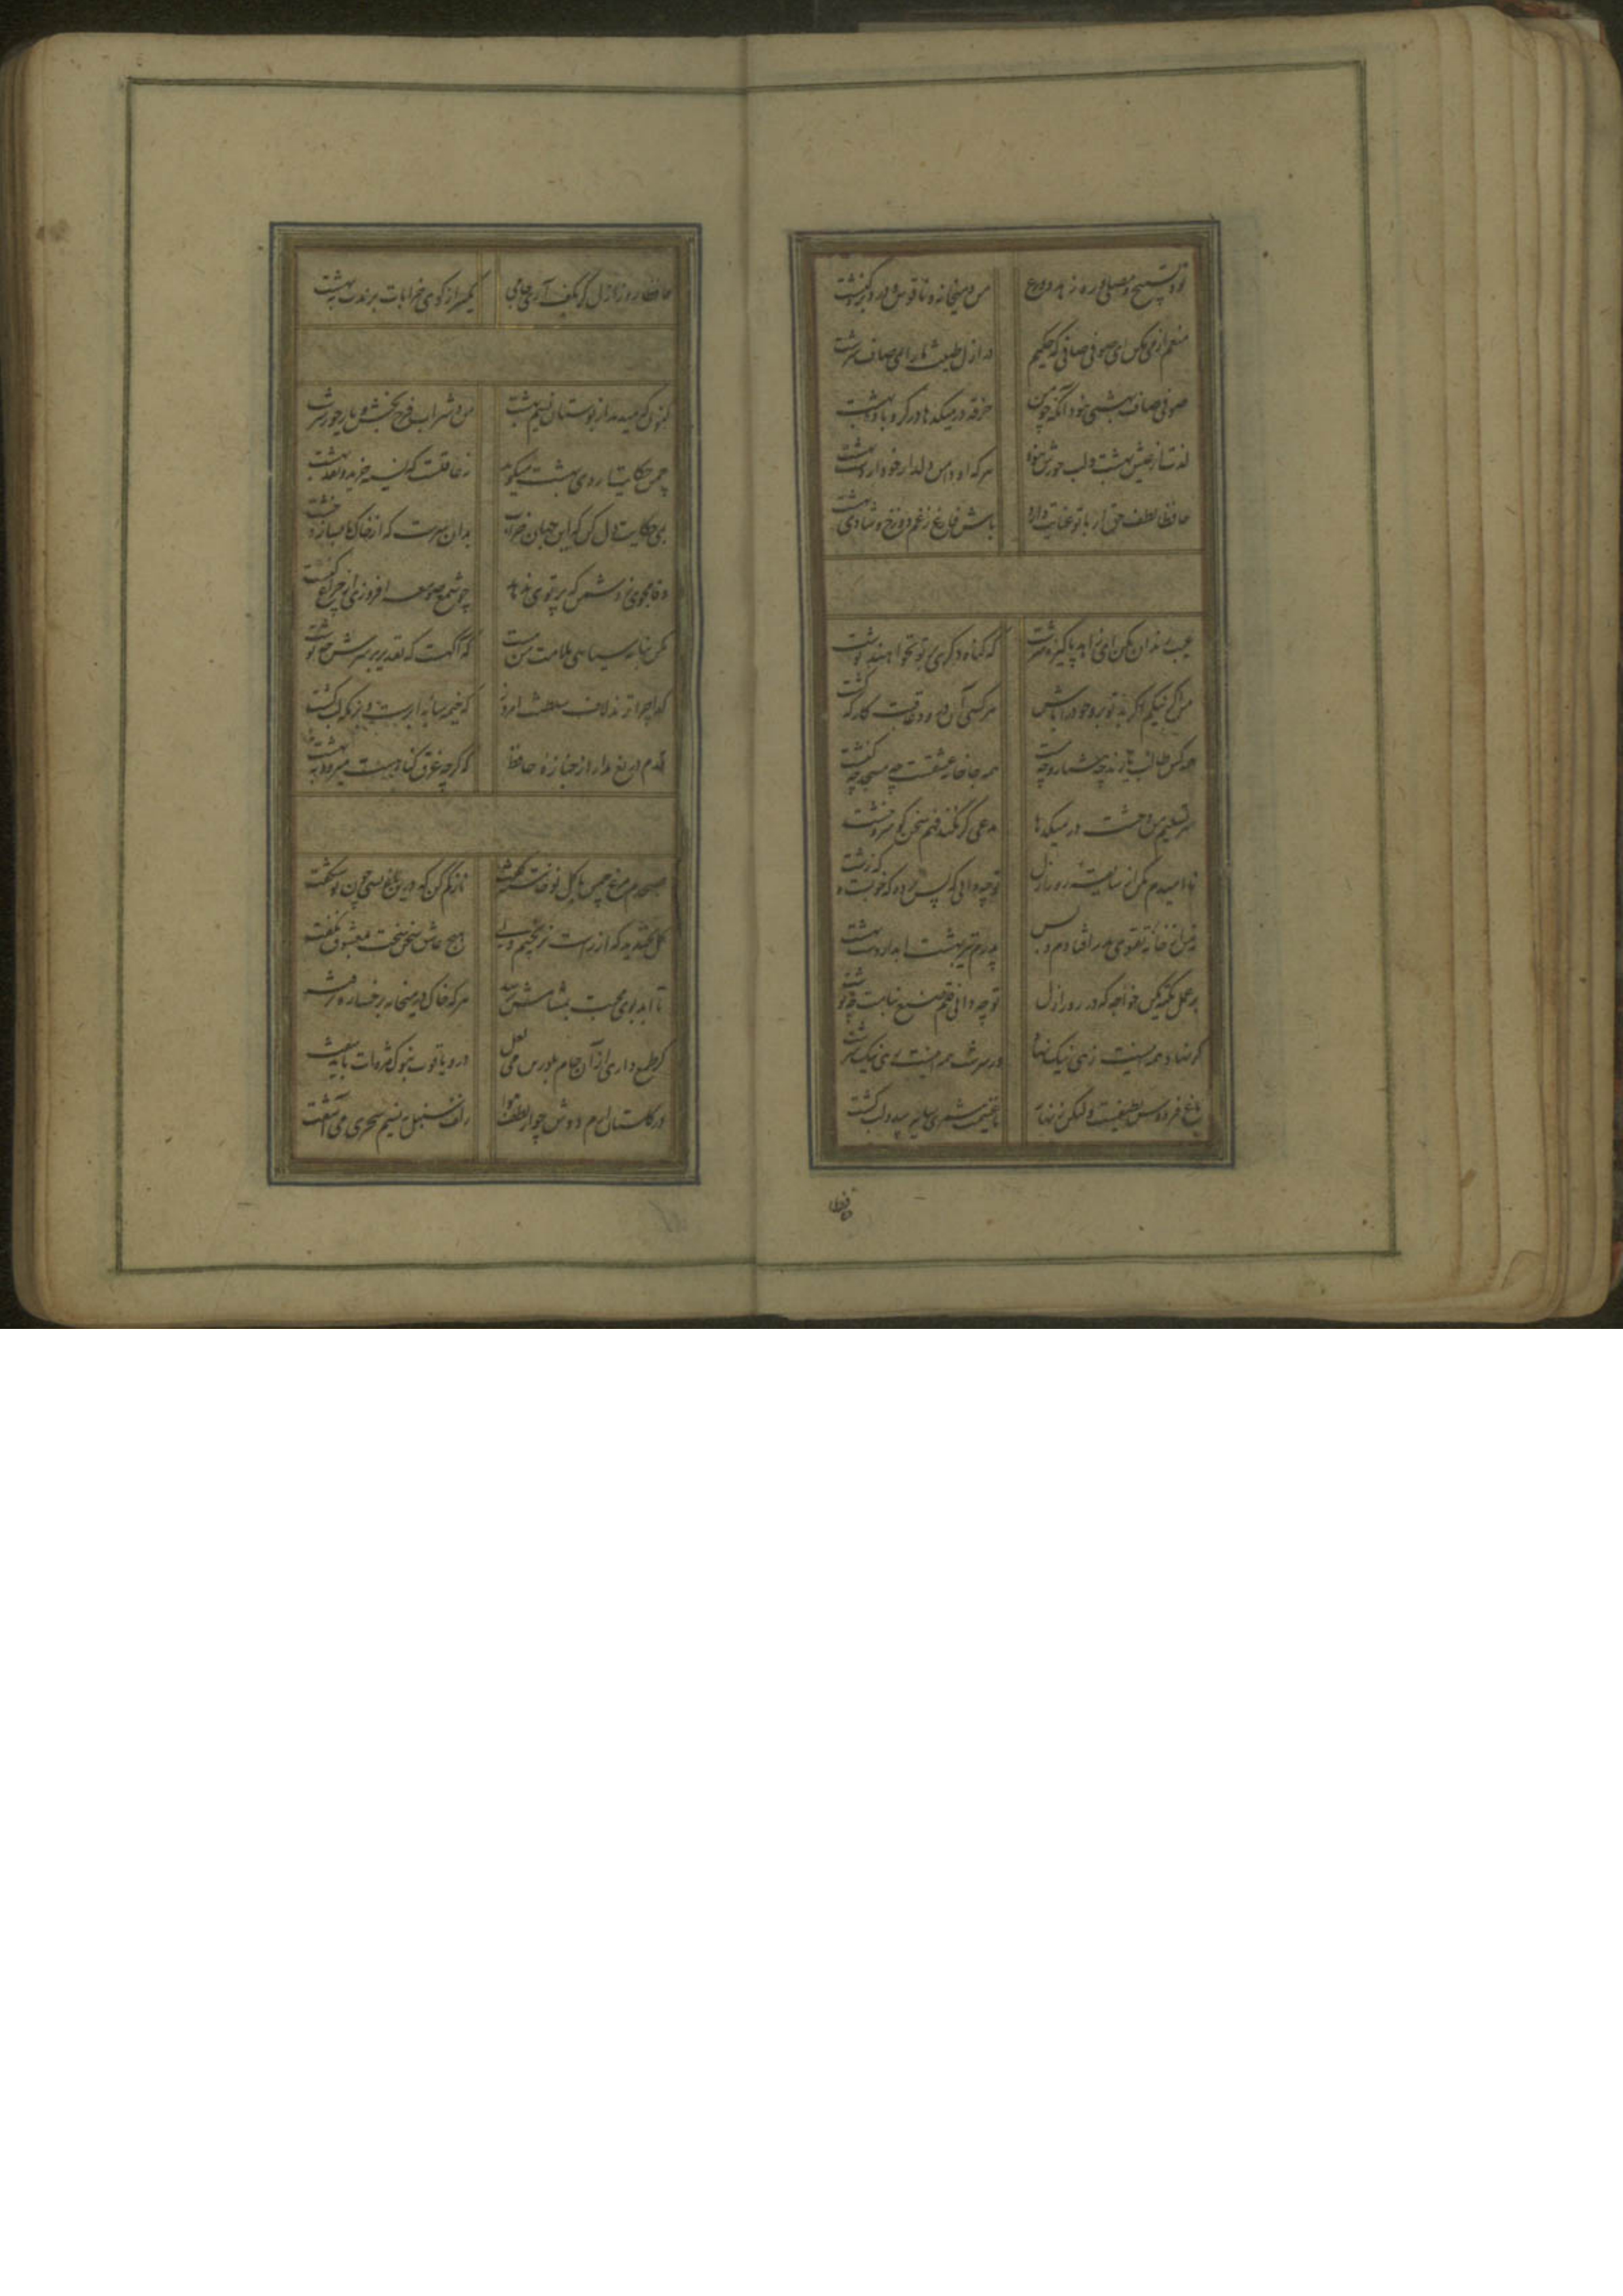 تو و تسبیح و مصلی و ره زهد و ورع من و میخانه و ناقوس و ره دیر و کنشت
منعم از می مکن ای صوفی صافی که حکیم در ازل طینت ما را بمی صاف سرشت
صوفی صاف بهشتی نبود آنکه چو من خرقه در میکدها در گرو باده نهشت
لذت از عیش بهشت و لب حورش نبود هر که او دامن دلدار خود از دست بهشت
حافظا لطف حق ار با تو عنایت دارد باش فارغ ز غم دوزخ و شادی بهشت
عیب رندان مکن ای زاهد پاکیزه سرشت که گناه دگری بر تو نخواهند نوشت
من اگر نیکم اگر بد تو برو خود را باش هر کسی آن درود عاقبت کار که کشت
همه کس طالب یارند چه هشیار و چه مست همه جا خانه عشقست چه مسجد چه کنشت
سر تسلیم من و خشت در میکدها مدعی گر نکند فهم سخن گو سر و خشت
نا امیدم مکن از سابقه روز ازل تو چه دانی که پس پرده که خوبست و که زشت
نه من از خانه تقوی بدر افتادم و بس پدرم نیز بهشت ابد از دست بهشت
بر عمل تکیه مکن خواجه که در روز ازل تو چه دانی قلم صنع بنامت چه نوشت
گر نهادت همه اینست زهی نیک نهاد ور سرشتت همه اینست زهی نیک سرشت
باغ فردوس لطیفست ولیکن زنهار تا غنیمت شمری سایه بید و لب کشت
حافظا روز ازل گر بکف آری جامی یکسر از کوی خرابات برندت به بهشت
کنون که میدمد از بوستان نسیم بهشت من و شراب فرح بخش و یار حور سرشت
چمن حکایت اردی بهشت میگوید نه عاقلست که نسیه خرید و نقد بهشت
بمی حکایت دل کن که این جهان خراب بدان سرست که از خاک ما بسازد خشت
وفا مجوی ز دشمن که پرتوی ندهد چو شمع صومعه افروزی از چراغ کنشت
مکن بنامه سیاهی ملامت من مست که آگهست که تقدیر بر سرش چه نوشت
گدا چرا نزند لاف سلطنت امروز که خیمه سایه ابرست و بزمگه لب کشت
قدم دریغ مدار از جنازه حافظ که گرچه غرق گناهست میرود به بهشت
صبحدم مرغ چمن با گل نو خاسته گفت ناز کم کن که درین باغ بسی چون تو شکفت
گل بخندید که از راست نرنجیم ولی هیچ عاشق سخن سخت بمعشوق نگفت
تا ابد بوی محبت بمشامش نرسد هر که خاک در میخانه برخساره نرفت
گر طمع داری از آن جام مرصع می لعل در و یاقوت بنوک مژه‌ات باید سفت
در گلستان ارم دوش چو از لطف هوا زلف سنبل ز نسیم سحری می آشفت